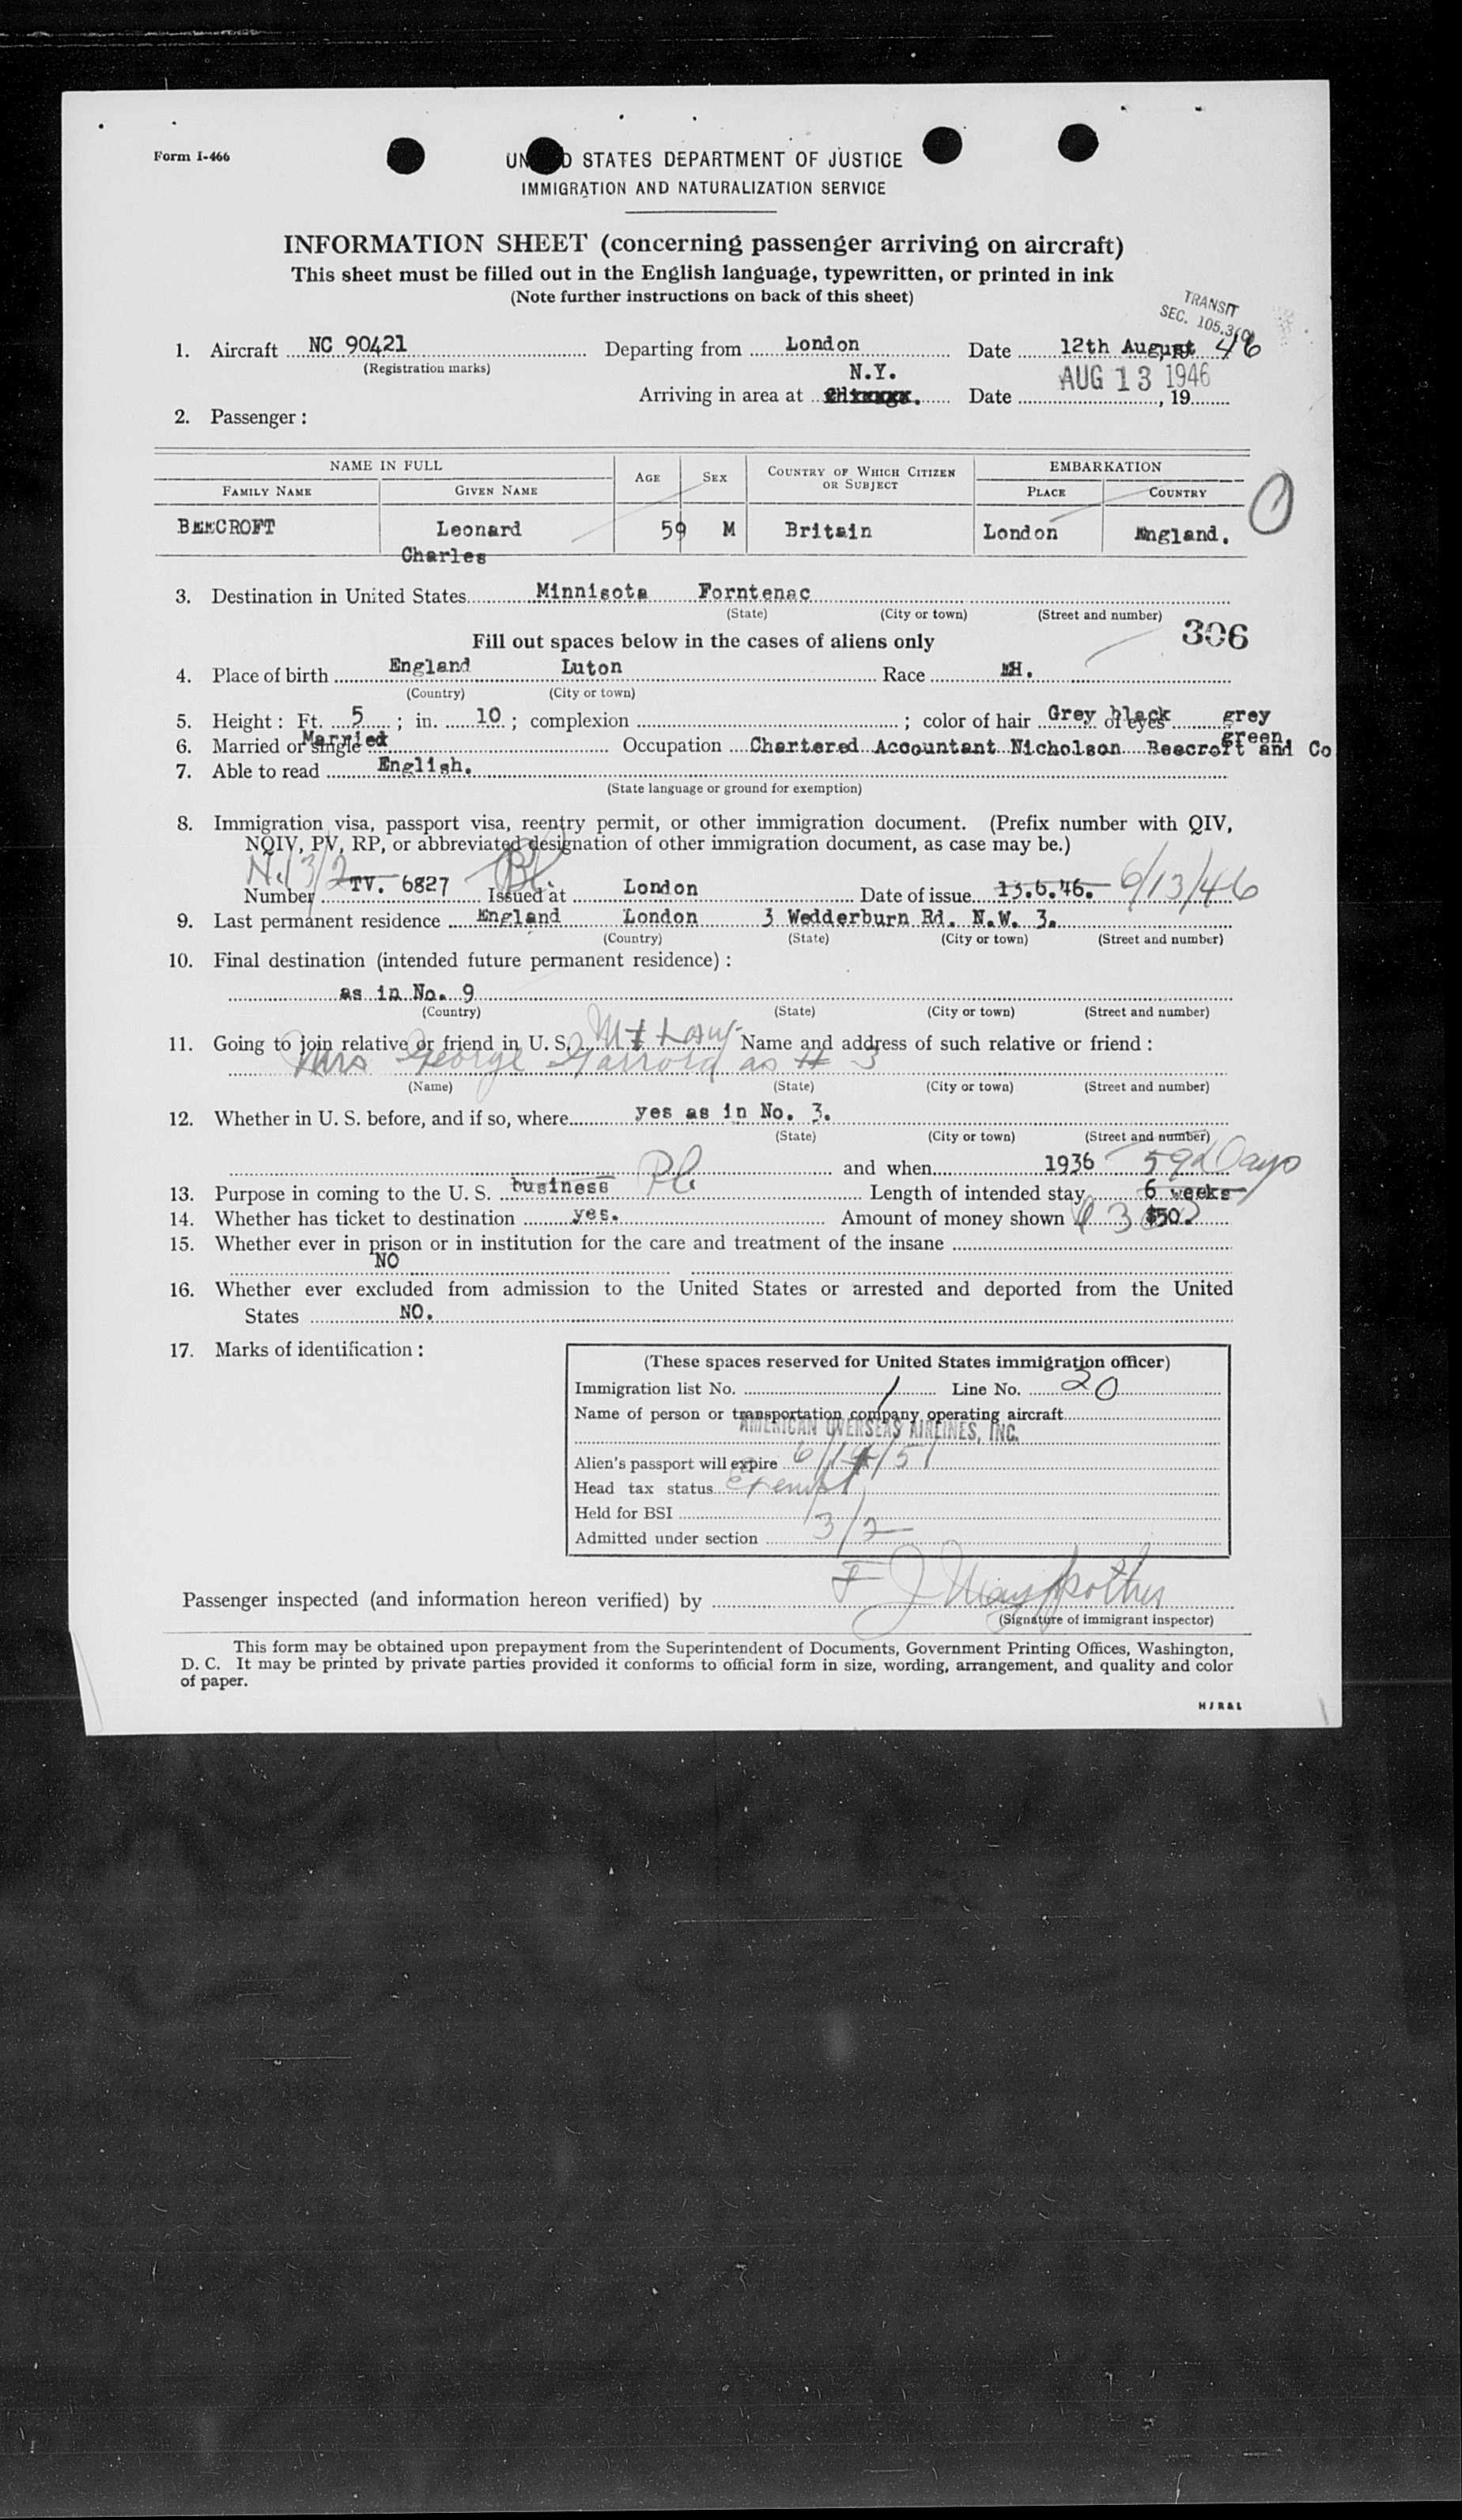 Form I-466
UN D STATES DEPARTMENT OF JUSTICE
IMMIGRATION AND NATURALIZATION SERVICE
INFORMATION SHEET (concerning passenger arriving on aircraft)
This sheet must be filled out in the English language, typewritten, or printed in ink
(Note further instructions on back of this sheet)
TRANSIT
SEC. 105.3(c)
1. Aircraft NC 90421 Departing from London Date 12th August, 46
(Registration marks)
N.Y.
Arriving in area at Date AUG 13 1946, 19
2. Passenger:
NAME IN FULL AGE SEX COUNTRY OF WHICH CITIZEN OR SUBJECT EMBARKATION
FAMILY NAME GIVEN NAME PLACE COUNTRY
BEECROFT Leonard 59 M Britain London England.
Charles
3. Destination in United States Minnisota Forntenac
(State) (City or town) (Street and number)
306
Fill out spaces below in the cases of aliens only
4. Place of birth England Luton Race EH.
(Country) (City or town)
5. Height: Ft. 5; in. 10; complexion ; color of hair Grey black of eyes grey
green.
6. Married or single Married Occupation Chartered Accountant Nicholson Beecroft and Co
7. Able to read English.
(State language or ground for exemption)
8. Immigration visa, passport visa, reentry permit, or other immigration document. (Prefix number with QIV,
NQIV, PV, RP, or abbreviated designation of other immigration document, as case may be.)
3/2
Number TV. 6827 Issued at London Date of issue 13.6.46. 6/13/46
9. Last permanent residence England London 3 Wedderburn Rd. N.W. 3.
(Country) (State) (City or town) (Street and number)
10. Final destination (intended future permanent residence):
as in No. 9
(Country) (State) (City or town) (Street and number)
11. Going to join relative or friend in U. S. Name and address of such relative or friend:
Mrs George as # 3
(Name) (State) (City or town) (Street and number)
12. Whether in U. S. before, and if so, where yes as in No. 3.
(State) (City or town) (Street and number)
and when 1936 59 Days
13. Purpose in coming to the U. S. business Length of intended stay 6 weeks
14. Whether has ticket to destination yes. Amount of money shown $50.
15. Whether ever in prison or in institution for the care and treatment of the insane
NO
16. Whether ever excluded from admission to the United States or arrested and deported from the United
States NO.
17. Marks of identification:
(These spaces reserved for United States immigration officer)
Immigration list No. 1 Line No. 20
Name of person or transportation company operating aircraft
AMERICAN OVERSEAS AIRLINES, INC.
Alien's passport will expire 6/14/51
Head tax status exempt
Held for BSI
Admitted under section 3/2
Passenger inspected (and information hereon verified) by F J
(Signature of immigrant inspector)
This form may be obtained upon prepayment from the Superintendent of Documents, Government Printing Offices, Washington,
D. C. It may be printed by private parties provided it conforms to official form in size, wording, arrangement, and quality and color
of paper.
HJR&L